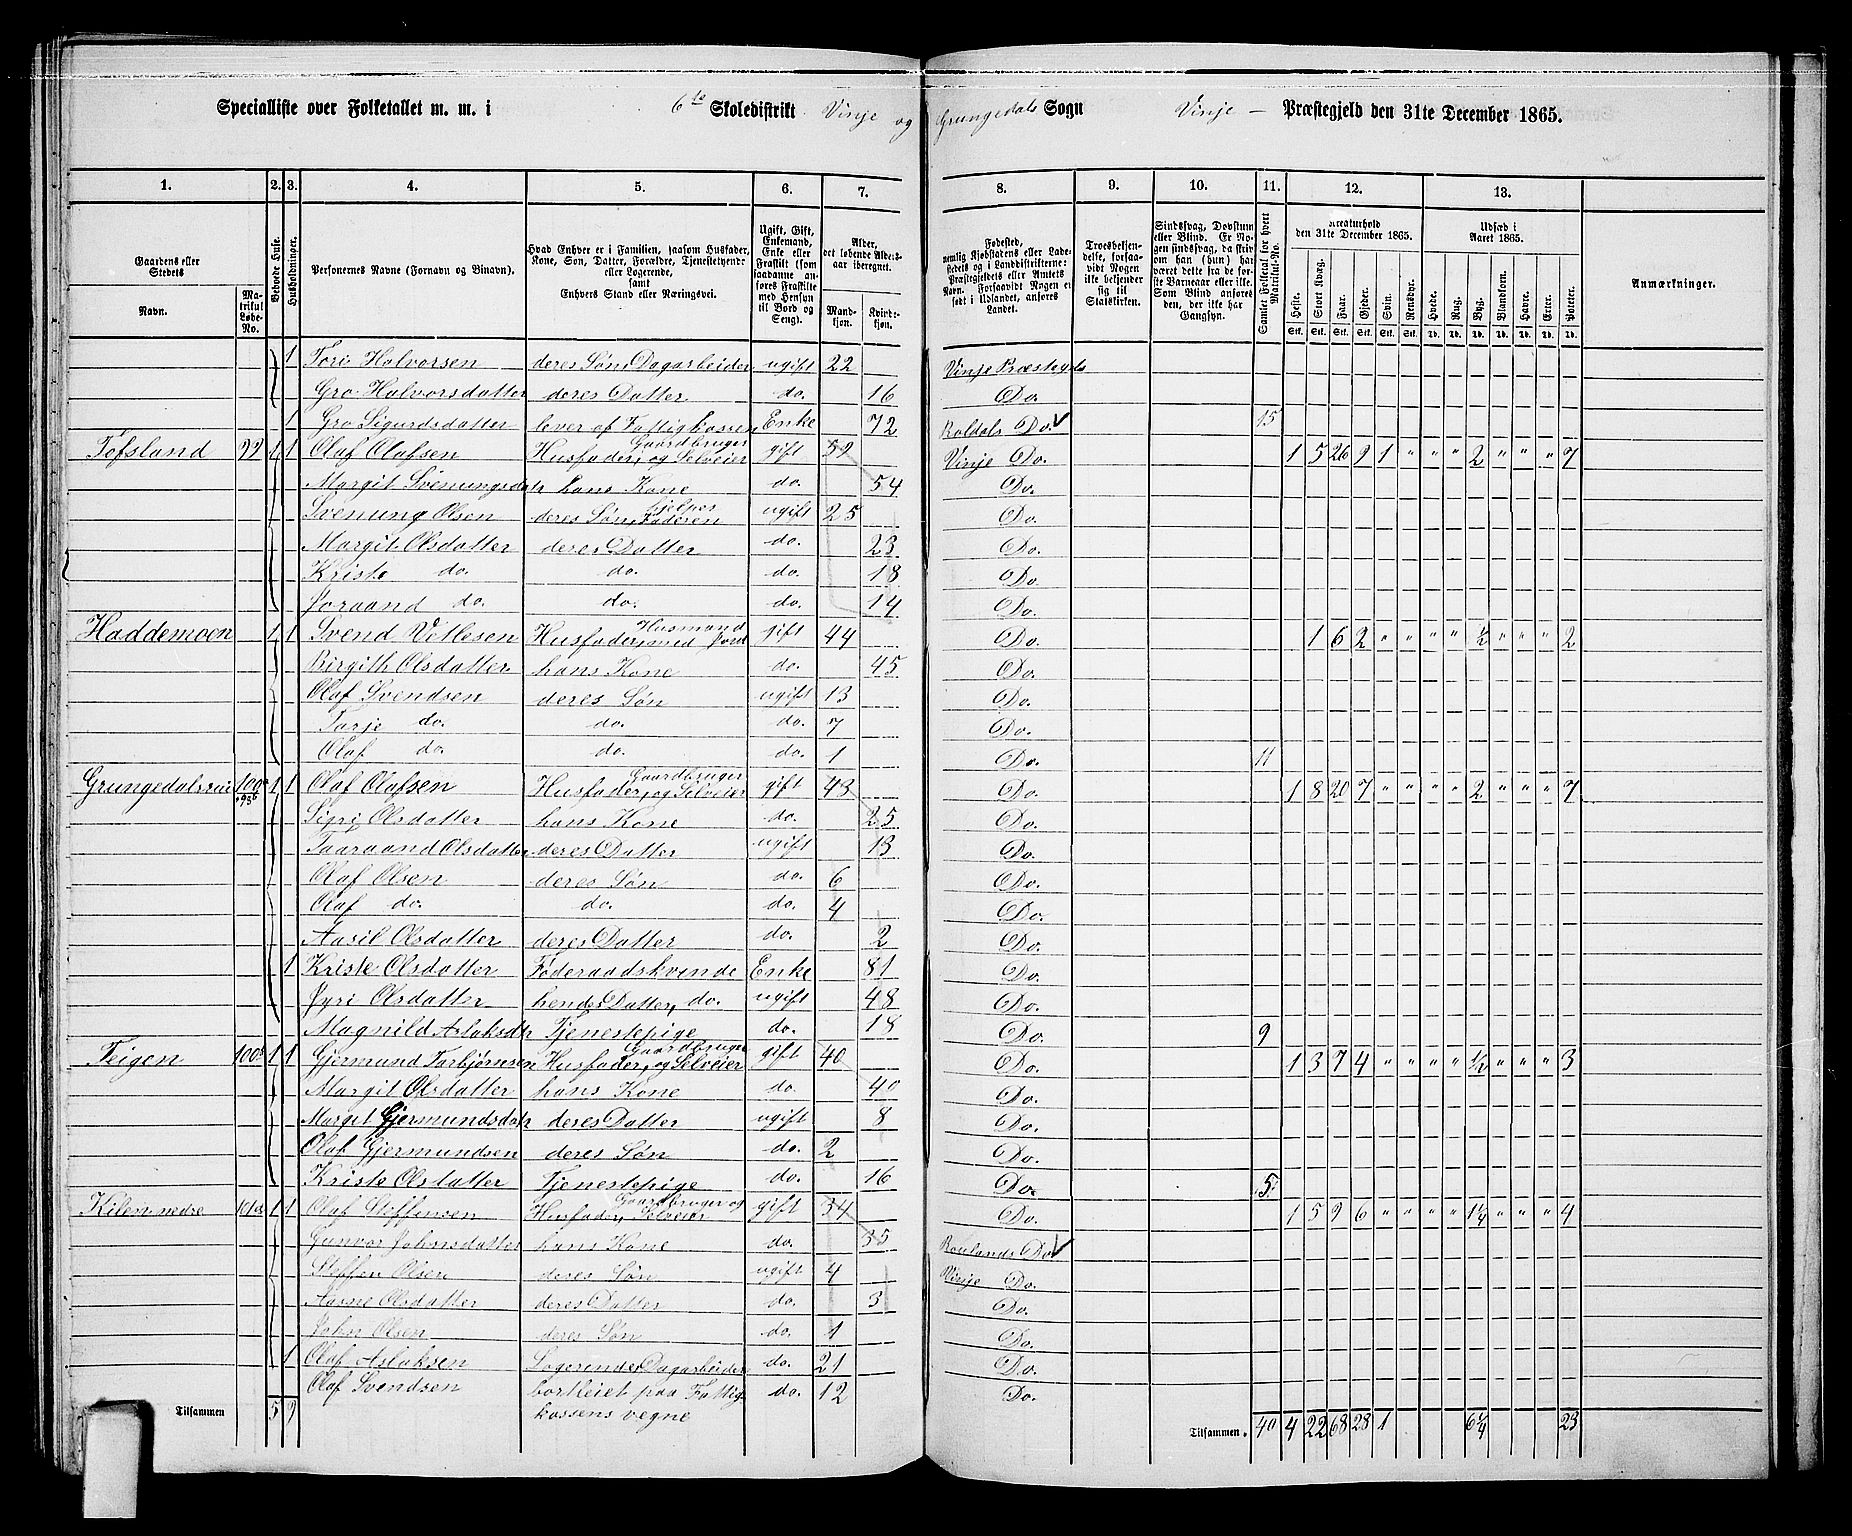 Specialliste over Folketallet m. m. i 6te Skoledistrikt Vinje og Grungedals Sogn Vinje – Præstegjeld den 31te December 1865.
1. 2. 3. 4. 5. 6. 7. 8. 9. 10. 11. 12. 13.
Gaardens eller Stedets Navn. Matrikul Løbe-No. Beboede Huse. Husholdninger. Personernes Navne (Fornavn og Binavn). Hvad Enhver er i Familien, saasom Husfader, Kone, Søn, Datter, Forældre, Tjenestetyende eller Logerende, samt Enhvers Stand eller Næringsvei. Ugift, Gift, Enkemand, Enke eller Fraskilt (som saadanne anføres Fraskilte med Hensyn til Bord og Seng). Alder, det løbende Aldersaar iberegnet. Mandkjøn. Kvindekjøn.
Fødested, nemlig Kjøbstadens eller Ladestedets og i Landdistrikterne: Præstegjeldets eller Amtets Navn. Forsaavidt Nogen er født i Udlandet, anføres Landet. Troesbekjendelse, forsaavidt Nogen ikke bekjender sig til Statskirken. Sindssvag, Døvstum eller Blind. Er Nogen sindssvag, da skrives om han (hun) har været dette fra de første Barneaar eller ikke. Som Blind anføres den, der ikke har Gangsyn. Samlet Folketal for hvert Matrikul-No. Kreaturhold den 31te December 1865. Udsæd i Aaret 1865. Anmærkninger.
Heste. Stort Kvæg. Faar. Gjeder. Svin. Rensdyr. Hvede. Rug. Byg. Blandkorn. Havre. Erter. Poteter.
Stk. Stk. Stk. Stk. Stk. Stk. Td. Td. Td. Td. Td. Td. Td.
1 Tori Halvorsen deres Søn Dagarbeider ugift 22 Vinje Præstegd
Gro Halvorsdatter deres Datter do. 16 Do.
1 Gro Sigurdsdatter lever af Fattigkassen Enke 72 Roldals Do. 15
Tofsland 99 1 1 Olaf Olafsen Husfader, Gaardbruger og Selveier gift 52 Vinje Do. 1 5 26 9 1 " " " 2 " " " 7
Margit Svenungsdatr hans Kone do. 54 Do.
Svenung Olsen deres Søn, hjelper Faderen ugift 25 Do.
Margit Olsdatter deres Datter do. 23 Do.
Kriste do. do. do. 18 Do.
Joraand do. do. do. 14 Do.
Haddemoen 1 1 Svend Vetlesen Husfader, Husmand med Jord gift 44 Do. 1 6 2 " " " " ½ " " " 2
Birgith Olsdatter hans Kone do. 45 Do.
Olaf Svendsen deres Søn ugift 13 Do.
Tarje do. do. do. 7 Do.
Olaf do. do. do. 1 Do. 11
Grungedalsrui 100a 1 1 Olaf Olafsen Husfader, Gaardbruger og Selveier gift 43 Do. 1 8 20 7 " " " " 2 " " " 7
Sigri Olsdatter hans Kone do. 25 Do.
Taaraand Olsdatter deres Datter ugift 13 Do.
Olaf Olsen deres Søn do. 6 Do.
Olaf do. do. do. 4 Do.
Aasil Olsdatter deres Datter do. 2 Do.
1 Kriste Olsdatter Føderaadskvinde Enke 81 Do.
Jyri Olsdatter hendes Datter, do. ugift 48 Do.
Magnild Aslaksdtr Tjenestepige do. 18 Do. 9
Teigen 100b 1 1 Gjermund Torbjørnsen Husfader, Gaardbruger og Selveier gift 40 Do. 1 3 7 4 " " " " 1½ " " " 3
Margit Olsdatter hans Kone do. 40 Do.
Margit Gjermundsdatr deres Datter ugift 8 Do.
Olaf Gjermundsen deres Søn do. 2 Do.
Kriste Olsdatter Tjenestepige do. 16 Do. 5
Kilen nedre 101a 1 1 Olaf Steffensen Husfader, Gaardbruger og Selveier gift 34 Do. 1 5 9 6 " " " " 1¼ " " " 4
Gunvor Johnsdatter hans Kone do. 35 Raulands Do.
Steffen Olsen deres Søn ugift 4 Vinje Do.
Aasne Olsdatter deres Datter do. 3 Do.
John Olsen deres Søn do. 1 Do.
1 Olaf Aslaksen Logerende Dagarbeider do. 21 Do.
Olaf Svendsen bortleiet paa Fattigkassens vegne do. 12 Do.
Tilsammen 5 9 Tilsammen. 40 4 22 68 28 1 6¼ 23